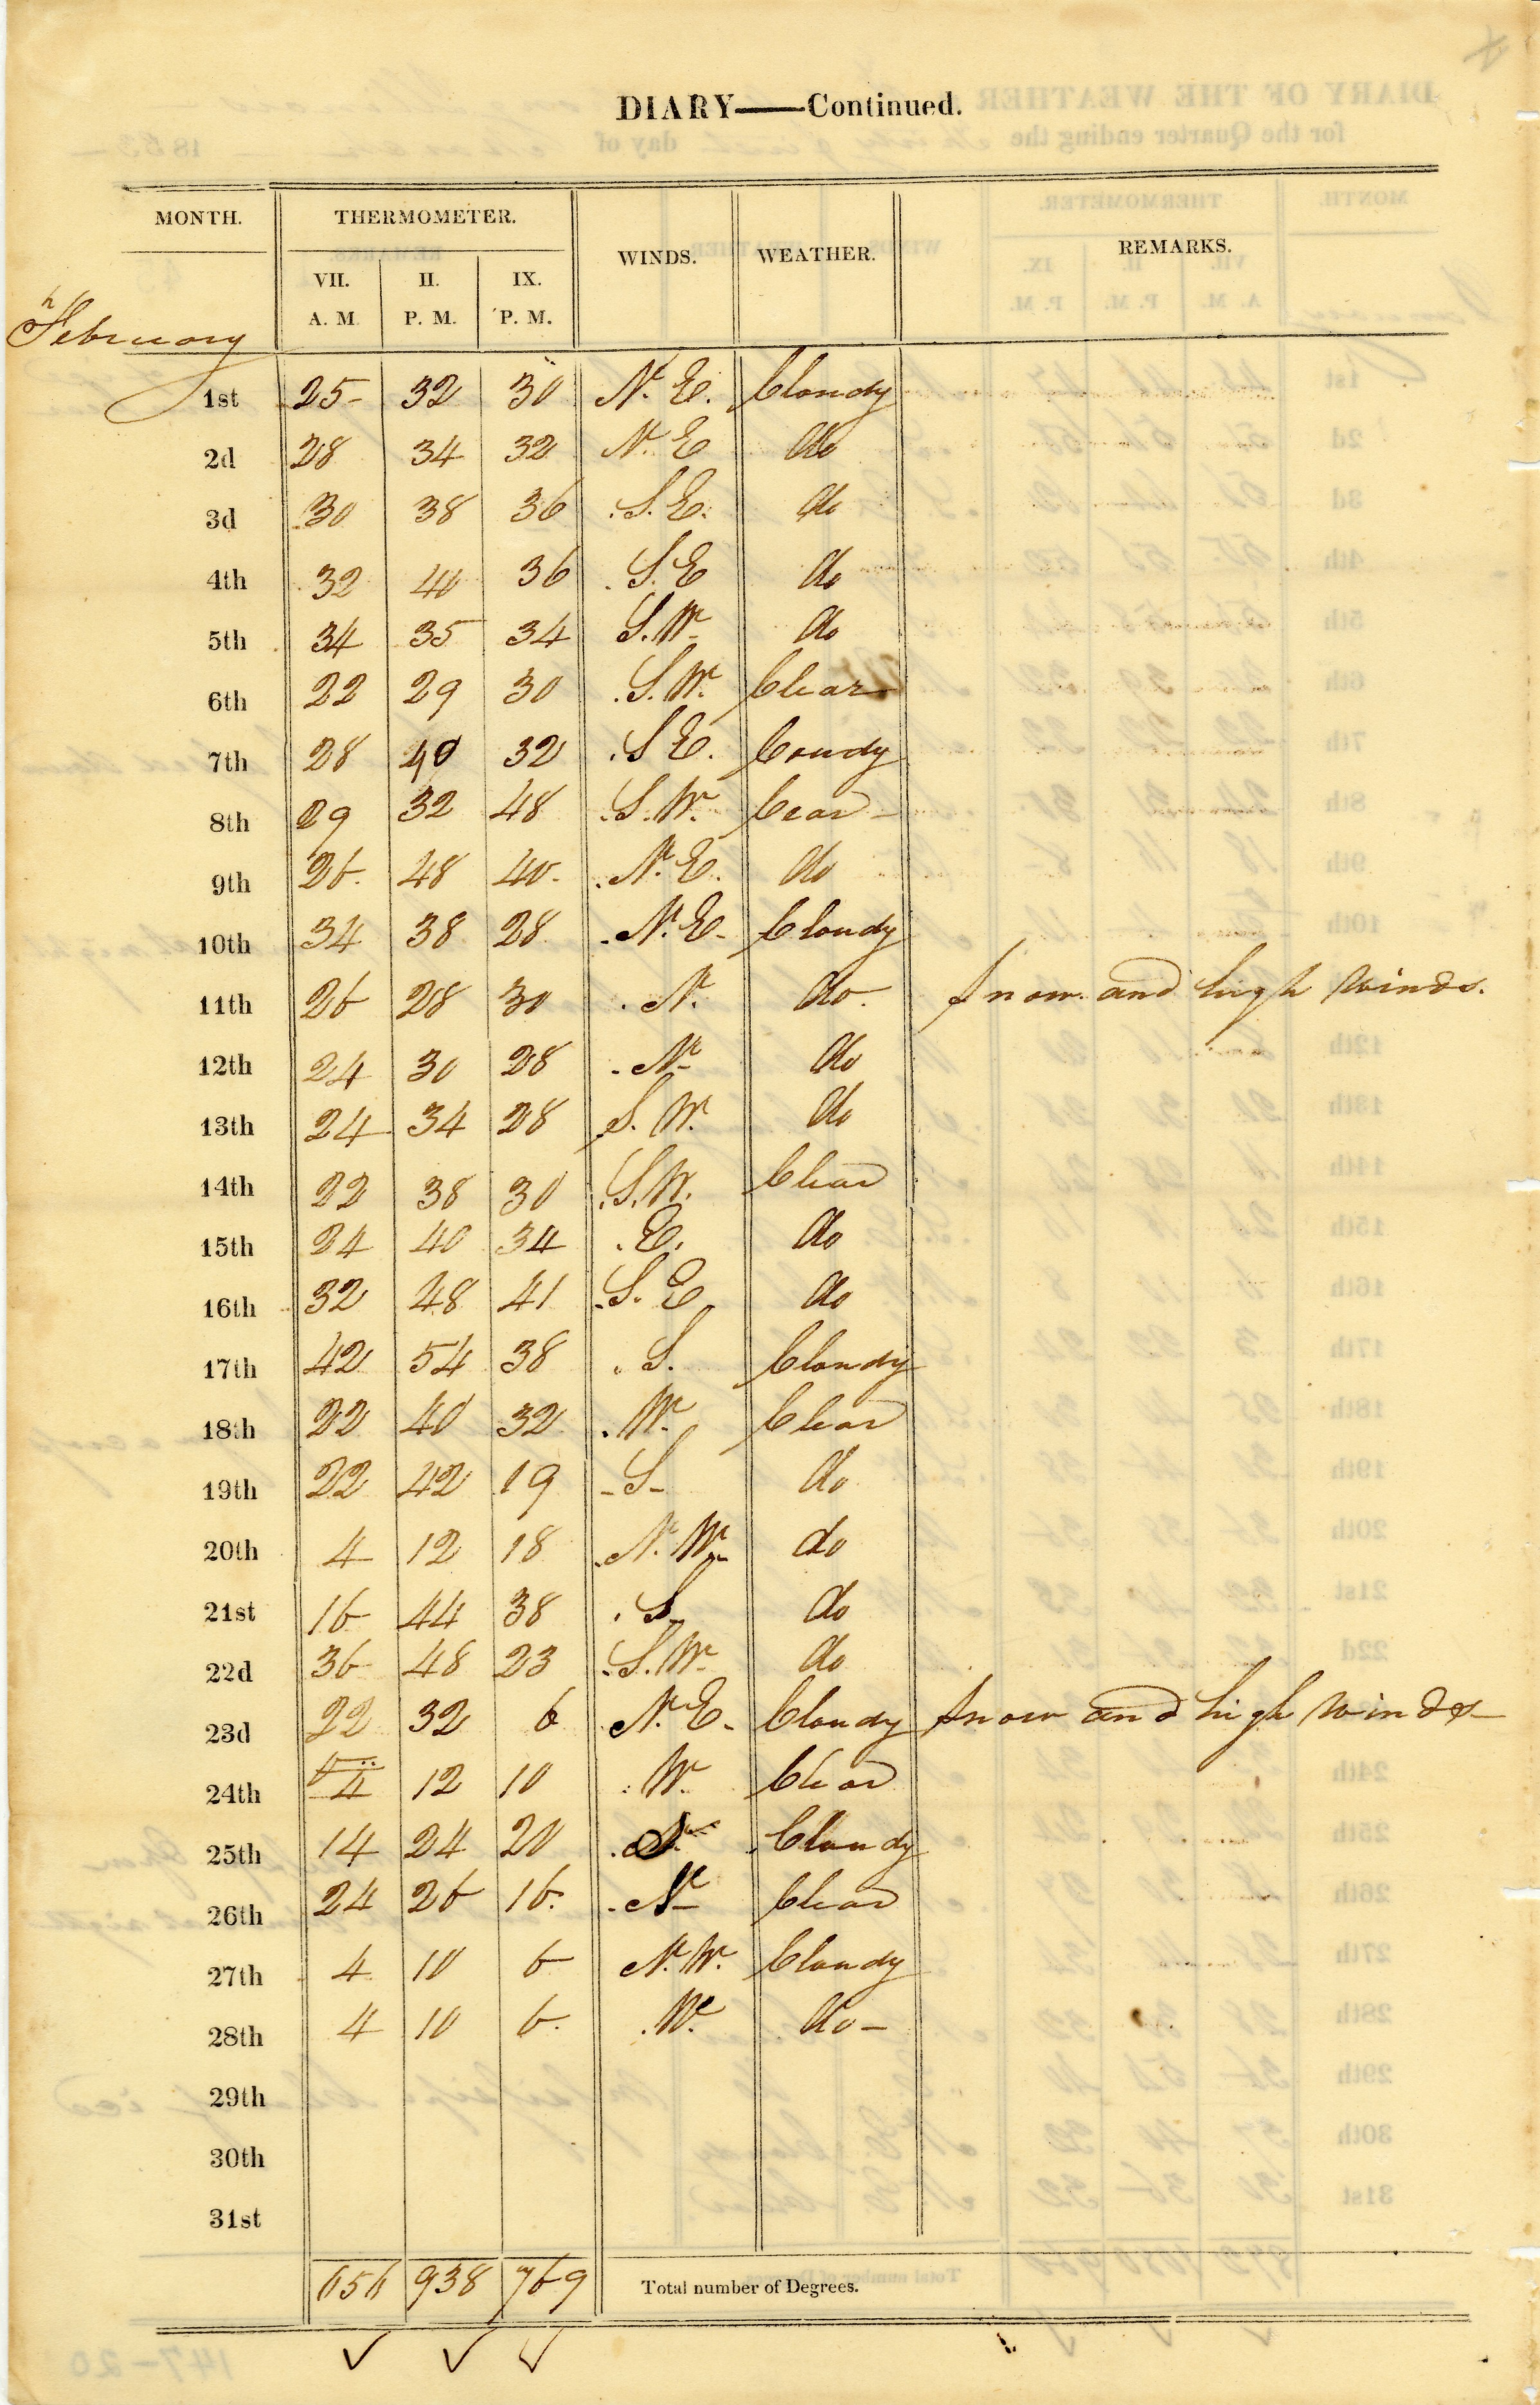 DIARY——Continued.
MONTH. THERMOMETER. WINDS. WEATHER. REMARKS.
VII. II. IX.
A. M. P. M. P. M.
February
1st 25 32 30 N. E. Cloudy
2d 28 34 32 N. E do
3d 30 38 36 S. E. do
4th 32 40 36 S. E do
5th 34 35 34 S. W. do
6th 22 29 30 S. W. Clear
7th 28 40 32 S E. Coudy
8th 29 32 48 S. W. Cear
9th 26. 48 40. N. E. do
10th 34 38 28 N. E. Cloudy
11th 26 28 30 N. do. Snow and high winds.
12th 24 30 28 N. do
13th 24 34 28 S. W. do
14th 22 38 30 S. W. Clear
15th 24 40 34 E. do
16th 32 48 41 S. E. do
17th 42 54 38 S. Cloudy
18th 22 40 32 W. Clear
19th 22 42 19 S do
20th 4 12 18 N. W. do
21st 16 44 38 S. do
22d 36 48 23 S. W. do
23d 22 32 6 N. E. Cloudy Snow and high winds
24th 4 12 10 W. Clear
25th 14 24 20 N. Cloudy
26th 24 26 16. N. Clear
27th 4 10 6 N. W. Cloudy
28th 4 10 6. W. do
29th
30th
31st
656 938 769 Total number of Degrees.